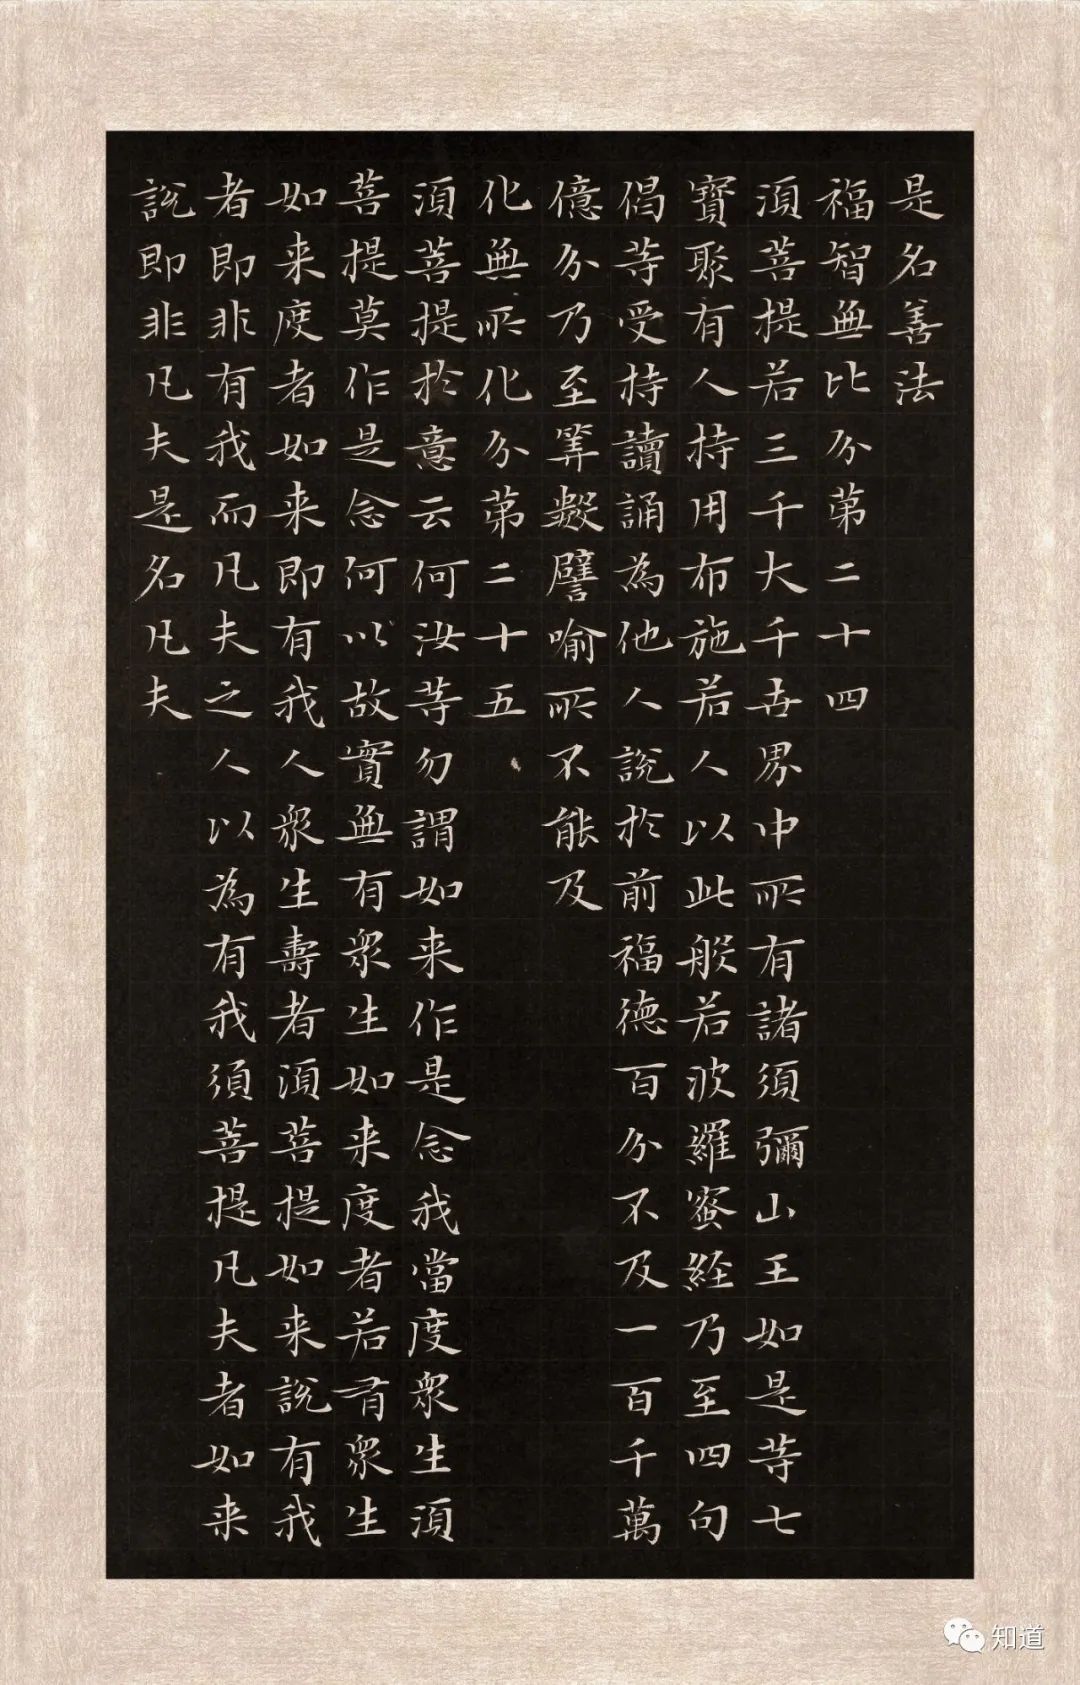 是名善法
福智無比分第二十四
須菩提若三千大千世界中所有諸須彌山王如是等七
寶聚有人持用布施若人以此般若波羅蜜経乃至四句
偈等受持讀誦為他人說於前福德百分不及一百千萬
億分乃至筭數譬喻所不能及
化無所化分第二十五
須菩提於意云何汝等勿謂如来作是念我當度衆生須
菩提莫作是念何以故實無有衆生如来度者若有衆生
如来度者如来即有我人衆生壽者須菩提如来說有我
者即非有我而凡夫之人以為有我須菩提凡夫者如来
說即非凡夫是名凡夫
知道